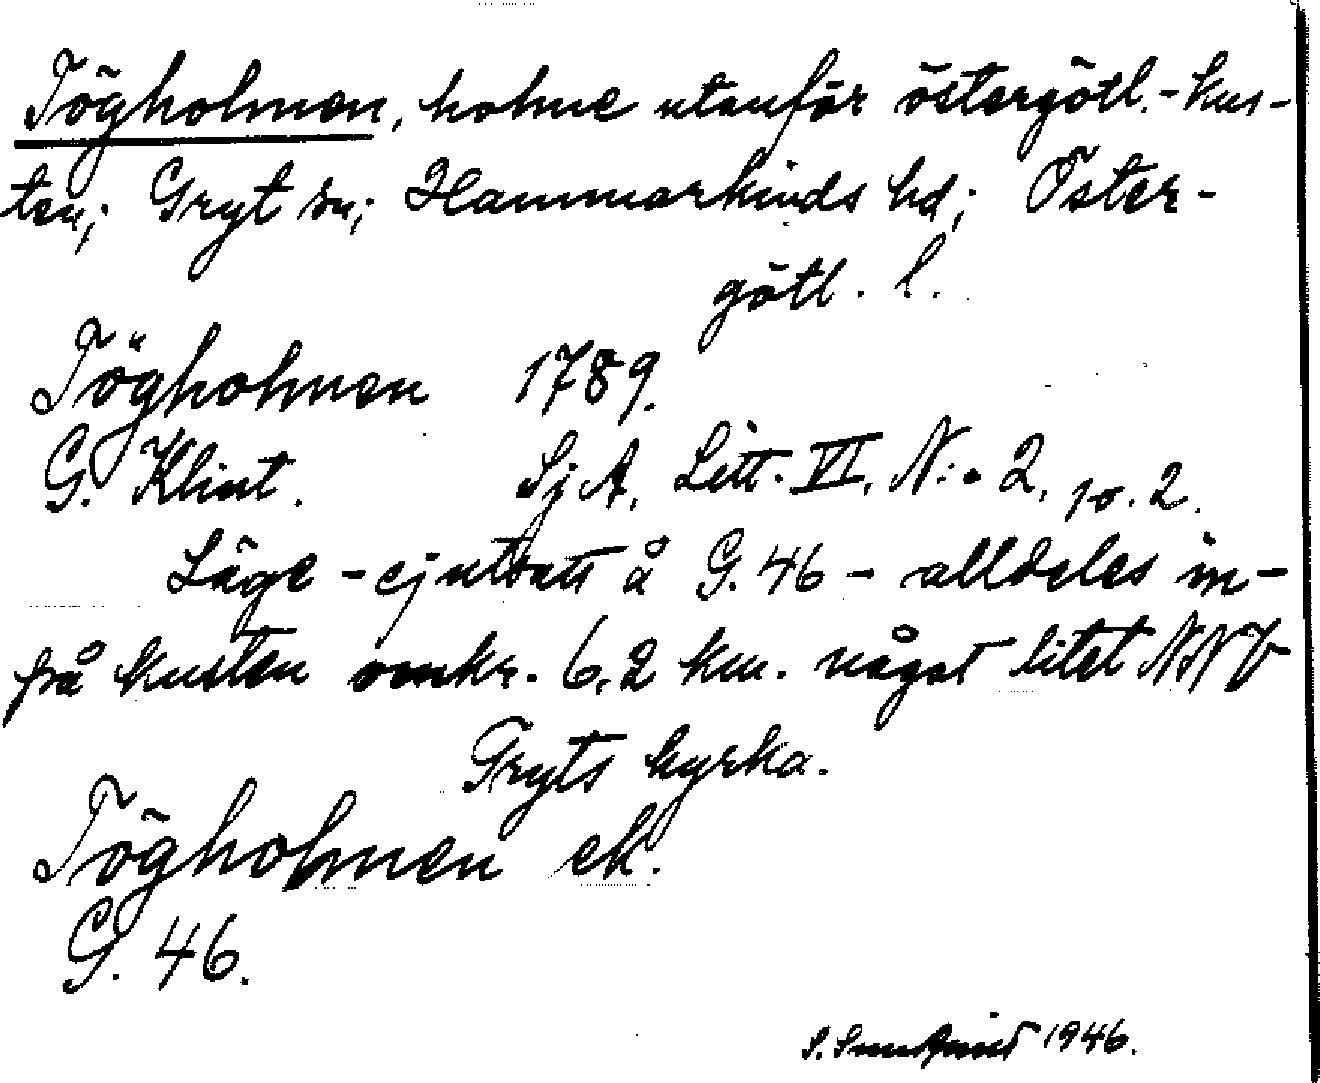 Tögholmen, holme utanför östergötl.-kus-
ten; Gryt sn; Hammarkinds hd; Öster-
götl. l.
Tögholmen 1789.
G. Klint. SjA, Litt. VI, N:o 2, 10. 2.
Läge - ej utsatt å G. 46 - alldeles in-
på kusten omkr. 6,2 km. något litet NNV
Gryts kyrka.
Tögholmen ek.
G. 46.
S. 1946.